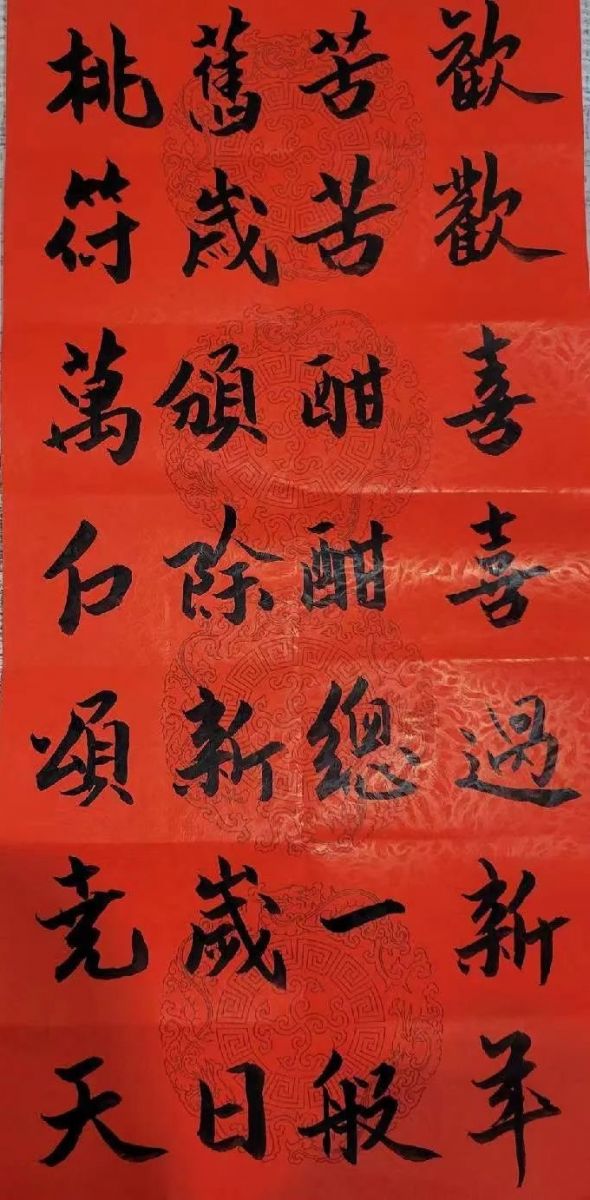 歡歡喜喜過新年
苦苦酣酣總一般
舊歲頒除新歲日
桃符萬户頌尭天